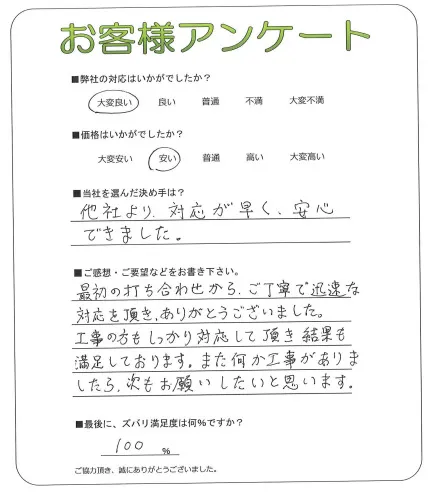 お客様アンケート
■弊社の対応はいかがでしたか？
大変良い 良い 普通 不満 大変不満
■価格はいかがでしたか？
大変安い 安い 普通 高い 大変高い
■当社を選んだ決め手は？
他社より、対応が早く、安心
できました。
■ご感想・ご要望などをお書き下さい。
最初の打ち合わせから、ご丁寧で迅速な
対応を頂き、ありがとうございました。
工事の方もしっかり対応して頂き結果も
満足しております。また何か工事がありま
したら、次もお願いしたいと思います。
■最後に、ズバリ満足度は何％ですか？
100 ％
ご協力頂き、誠にありがとうございました。